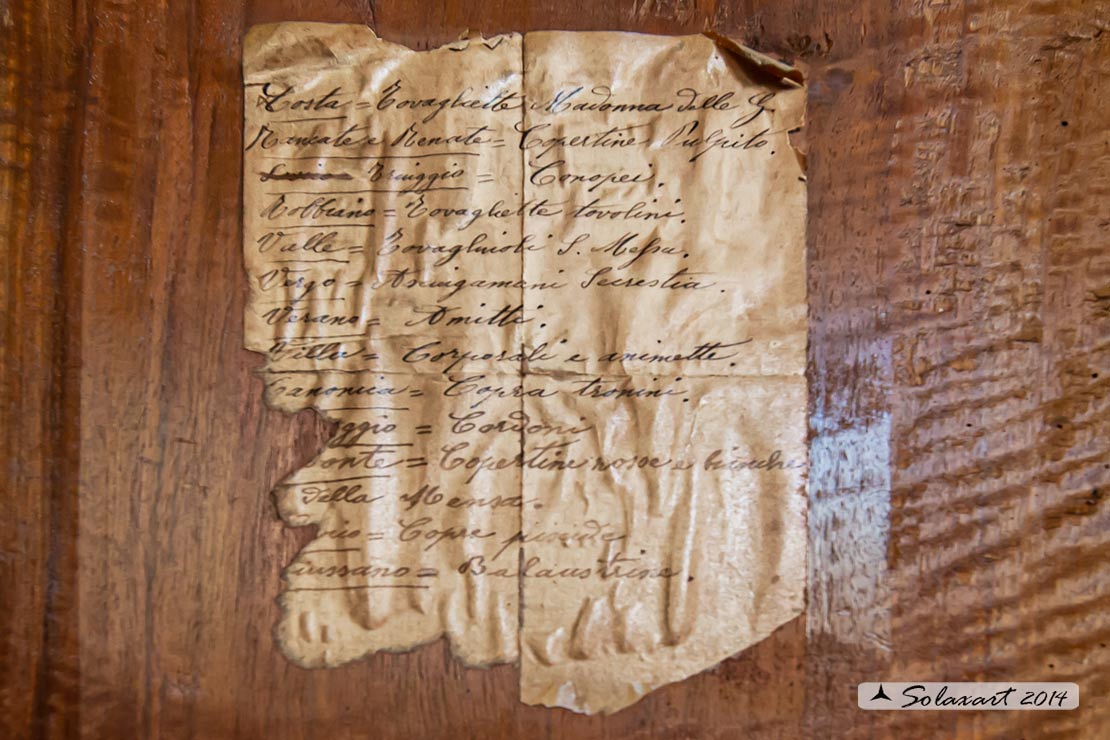 Costa = Tovagliette Madonna delle G
Rancate e Renate = Copertine Pulpito.
Triuggio = Conopei.
Robbiano = Tovagliette tovolini.
Vialle = Tovaglioli S. Messa.
Vergo = Asciugamani Secrestia.
Verano = Amitti.
Villa = Corporali e animette.
Canonica = Copra tronini.
ggio = Cordoni
onte = Copertine rosse e bianche
della Mensa.
= Copre pisside
iussano = Balaustrine.
Solaxart 2014